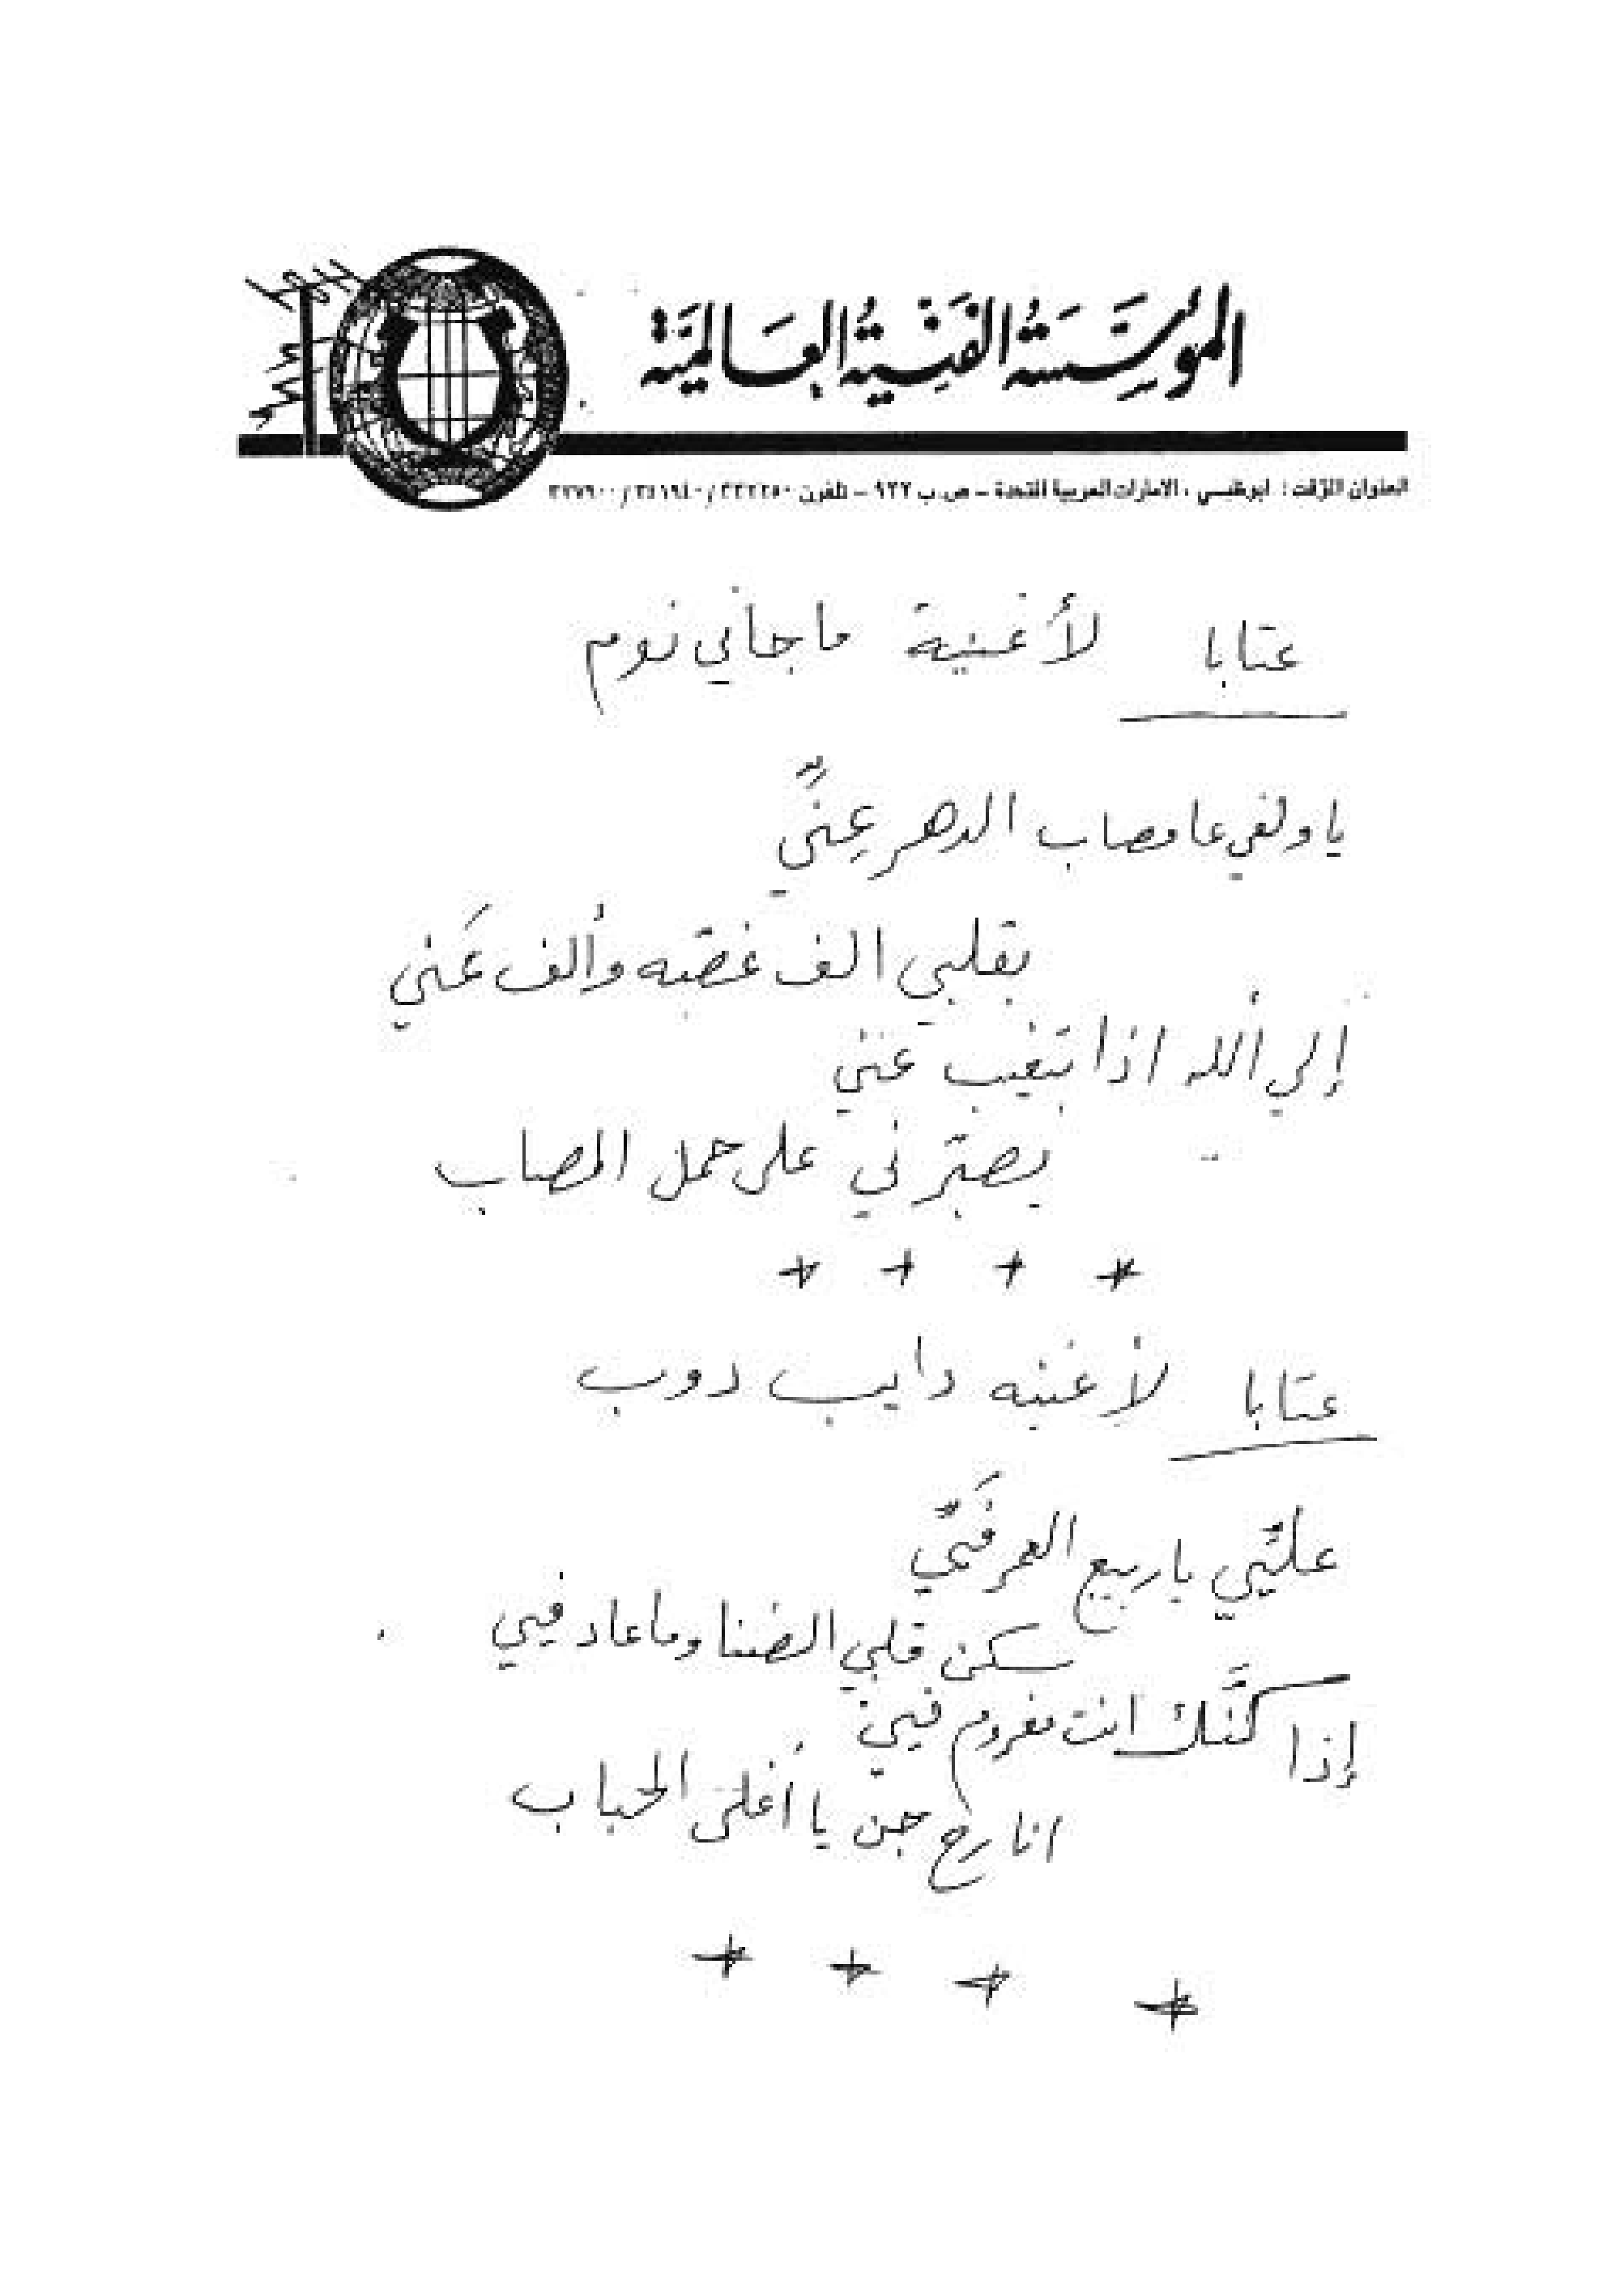 المؤسسة الفنية العالمية
العنوان المؤقت : ابوظبي ، الامارات العربية المتحدة – ص.ب ٩٢٢ – تلفون
عتابا لأغنية ما جاني نوم
يا ولفي عا مصاب الدهر عِنّي
بقلبي الف غصّه وألف عَني
إلي ألله اذا بتغيب عني
يصبّرني على حمل المصاب
عتابا لأغنيه دايب دوب
عليّي يا ربيع العمر فَيّي
سكن قلبي الضنا وما عاد فيي
إذا كنَّك انت مغروم فيي
انا رح جن يا أغلى الحباب